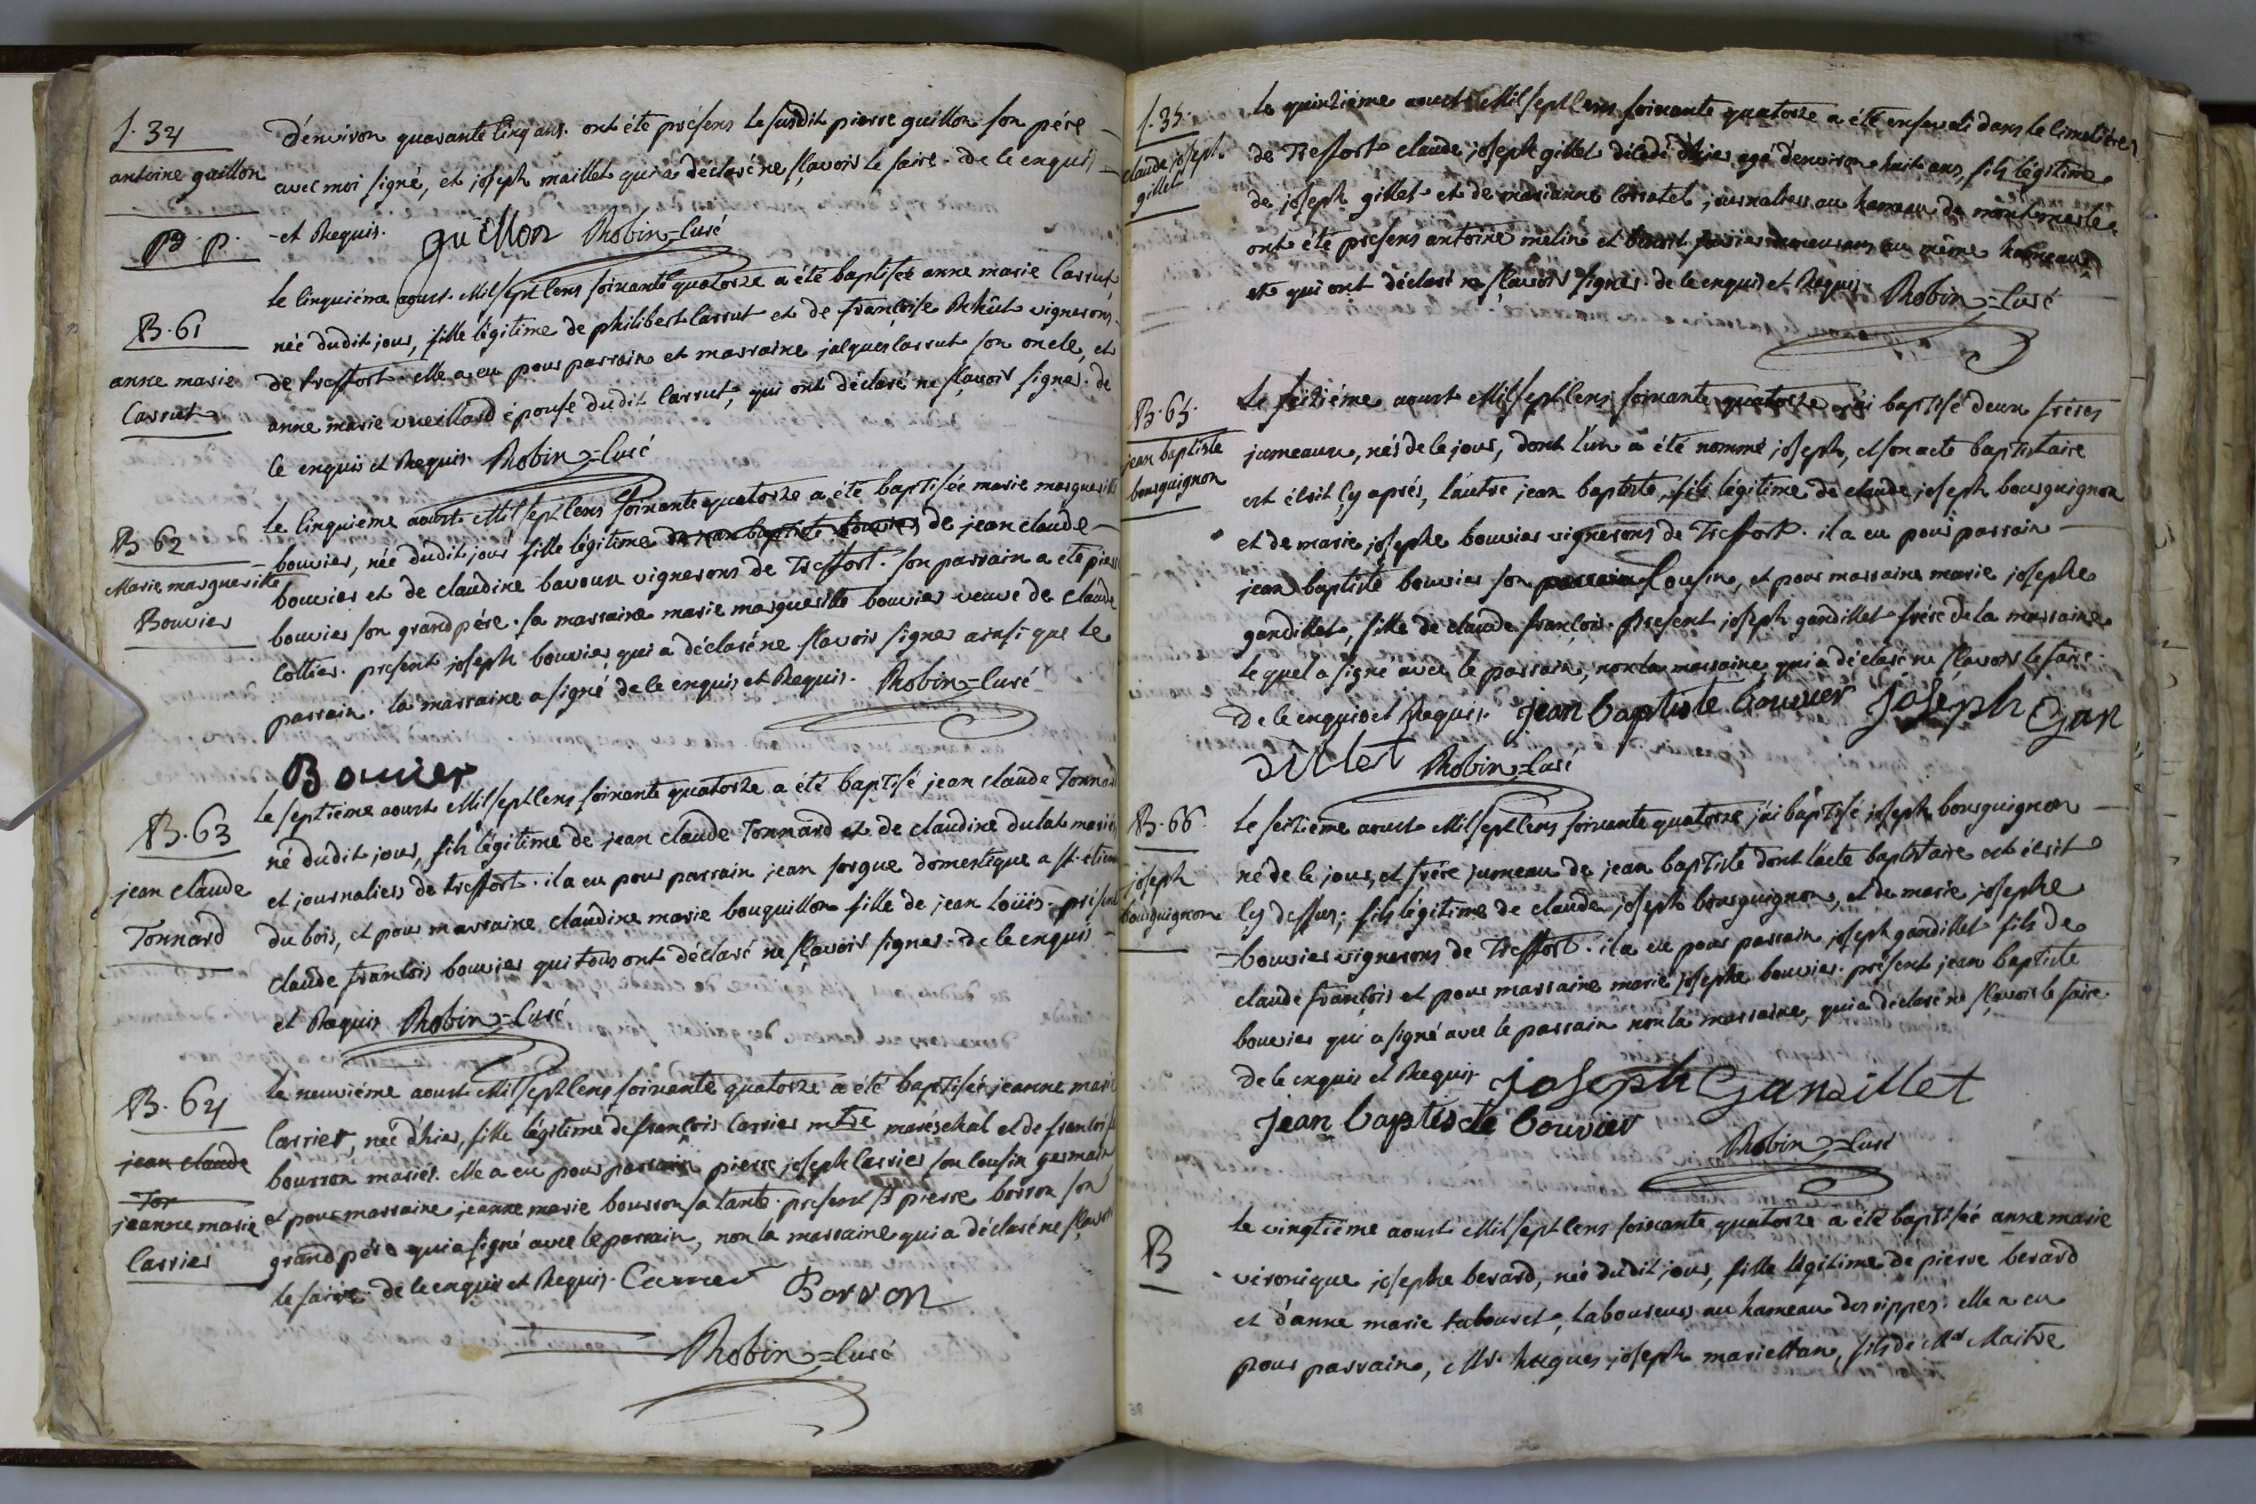 S. 34
antoine guillon
B. P.
d'environ quarante cinq ans. ont été présens le susdit pierre guillon son pére
avec moi signé, et joseph maillet qui a déclaré ne sçavoir le faire. de ce enquis
et Requis. guillon Robin=Curé
B. 61
anne marie
Carrut
le cinquiéme aoust Mil sept cens soixante quatorze a été baptisée anne marie Carrut
née dudit jour, fille légitime de philibert Carrut et de françoise Rehût vignerons
de treffort. elle a eu pour parrain et marraine jacques Carrut son oncle, et
anne marie vueillard épouse dudit Carrut, qui ont déclaré ne sçavoir signer. de
ce enquis et Requis. Robin=Curé
B 62
Marie marguerite
Bouvier
le cinquiéme aoust Mil sept cens soixante quatorze a été baptisée marie marguerite
bouvier, née dudit jour fille légitime de jean baptiste bouvier de jean claude
bouvier et de claudine bavoux vignerons de Treffort. son parrain a été pierre
bouvier son grand pére. sa marraine marie marguerite bouvier veuve de claude
Cottier. présent joseph bouvier qui a déclaré ne sçavoir signer ainsi que le
parrain. la marraine a signé de ce enquis et Requis. Robin=Curé
Bouvier
B. 63
jean claude
Tonnard
le septiéme aoust Mil sept cens soixante quatorze a été baptisé jean claude Tonnard
né dudit jour, fils légitime de jean claude Tonnard et de claudine dulat mariés
et journaliers de treffort. il a eu pour parrain jean sorgue domestique a st. étienne
du bois, et pour marraine claudine marie bouquillon fille de jean Loüis. présent
claude françois bouvier qui tous ont déclaré ne sçavoir signer. de ce enquis
et Requis Robin=Curé
B. 64
jean claude
Ton
jeanne marie
Carrier
le neuviéme aoust Mil sept cens soixante quatorze a été baptisée jeanne marie
Carrier, née d'hier, fille légitime de françois Carrier mtre maréschal et de françoise
bourron mariés. elle a eu pour parrain pierre joseph Carrier son Cousin germain
et pour marraine jeanne marie bourron sa tante. présent sr pierre borron son
grand pére qui a signé avec le parrain, non la marraine qui a déclaré ne sçavoir
le faire. de ce enquis et Requis. Carrier Borron
Robin=Curé
S. 35.
claude joseph
gillet
le quinziéme aoust Mil sept cens soixante quatorze a été enseveli dans le Cimetiére
de Treffort claude joseph gillet décédé d'hier agé d'environ huit ans, fils légitime
de joseph gillet et de marianne Corratel, journaliers au hameau de montmerle
ont été présens antoine melin et benoit demeurans au même hameau
et qui ont déclaré ne sçavoir signer. de ce enquis et Requis. Robin=Curé
B. 65.
jean baptiste
bourguignon
Le seiziéme aoust Mil sept cens soixante quatorze j'ai baptisé deux fréres
jumeaux, nés de ce jour, dont l'un a été nommé joseph, et son acte baptistaire
est écrit cy aprés, l'autre jean baptiste, fils légitime de claude joseph bourguignon
et de marie josephe bouvier vignerons de Treffort. il a eu pour parrain
jean baptiste bouvier son parrain Cousin, et pour marraine marie josephe
gandillet, fille de claude françois. présent joseph gandillet frére de la marraine
lequel a signé avec le parrain, non la marraine, qui a déclaré ne sçavoir le faire.
de ce enquis et Requis. jean baptiste bouvier joseph Gan
dillet Robin=Curé
B. 66
joseph
bourguignon
le seiziéme aoust Mil sept cens soixante quatorze j'ai baptisé joseph bourguignon
né de ce jour, et frére jumeau de jean baptiste dont l'acte baptistaire est écrit
cy dessus; fils légitime de claude joseph bourguignon, et de marie josephe
bouvier vignerons de Treffort. il a eu pour parrain joseph gandillet fils de
claude françois et pour marraine marie josephe bouvier. présent jean baptiste
bouvier qui a signé avec le parrain non la marraine, qui a déclaré ne sçavoir le faire
de ce enquis et Requis joseph Gandillet
jean baptiste bouvier
Robin=Curé
B
le vingtiéme aoust Mil sept cens soixante quatorze a été baptisée anne marie
véronique josephe berard, née dudit jour, fille légitime de pierre berard
et d'anne marie tabouret, laboureurs au hameau des rippes. elle a eu
pour parrain, Mr. hugues joseph mariettan, fils de Mr Maitre